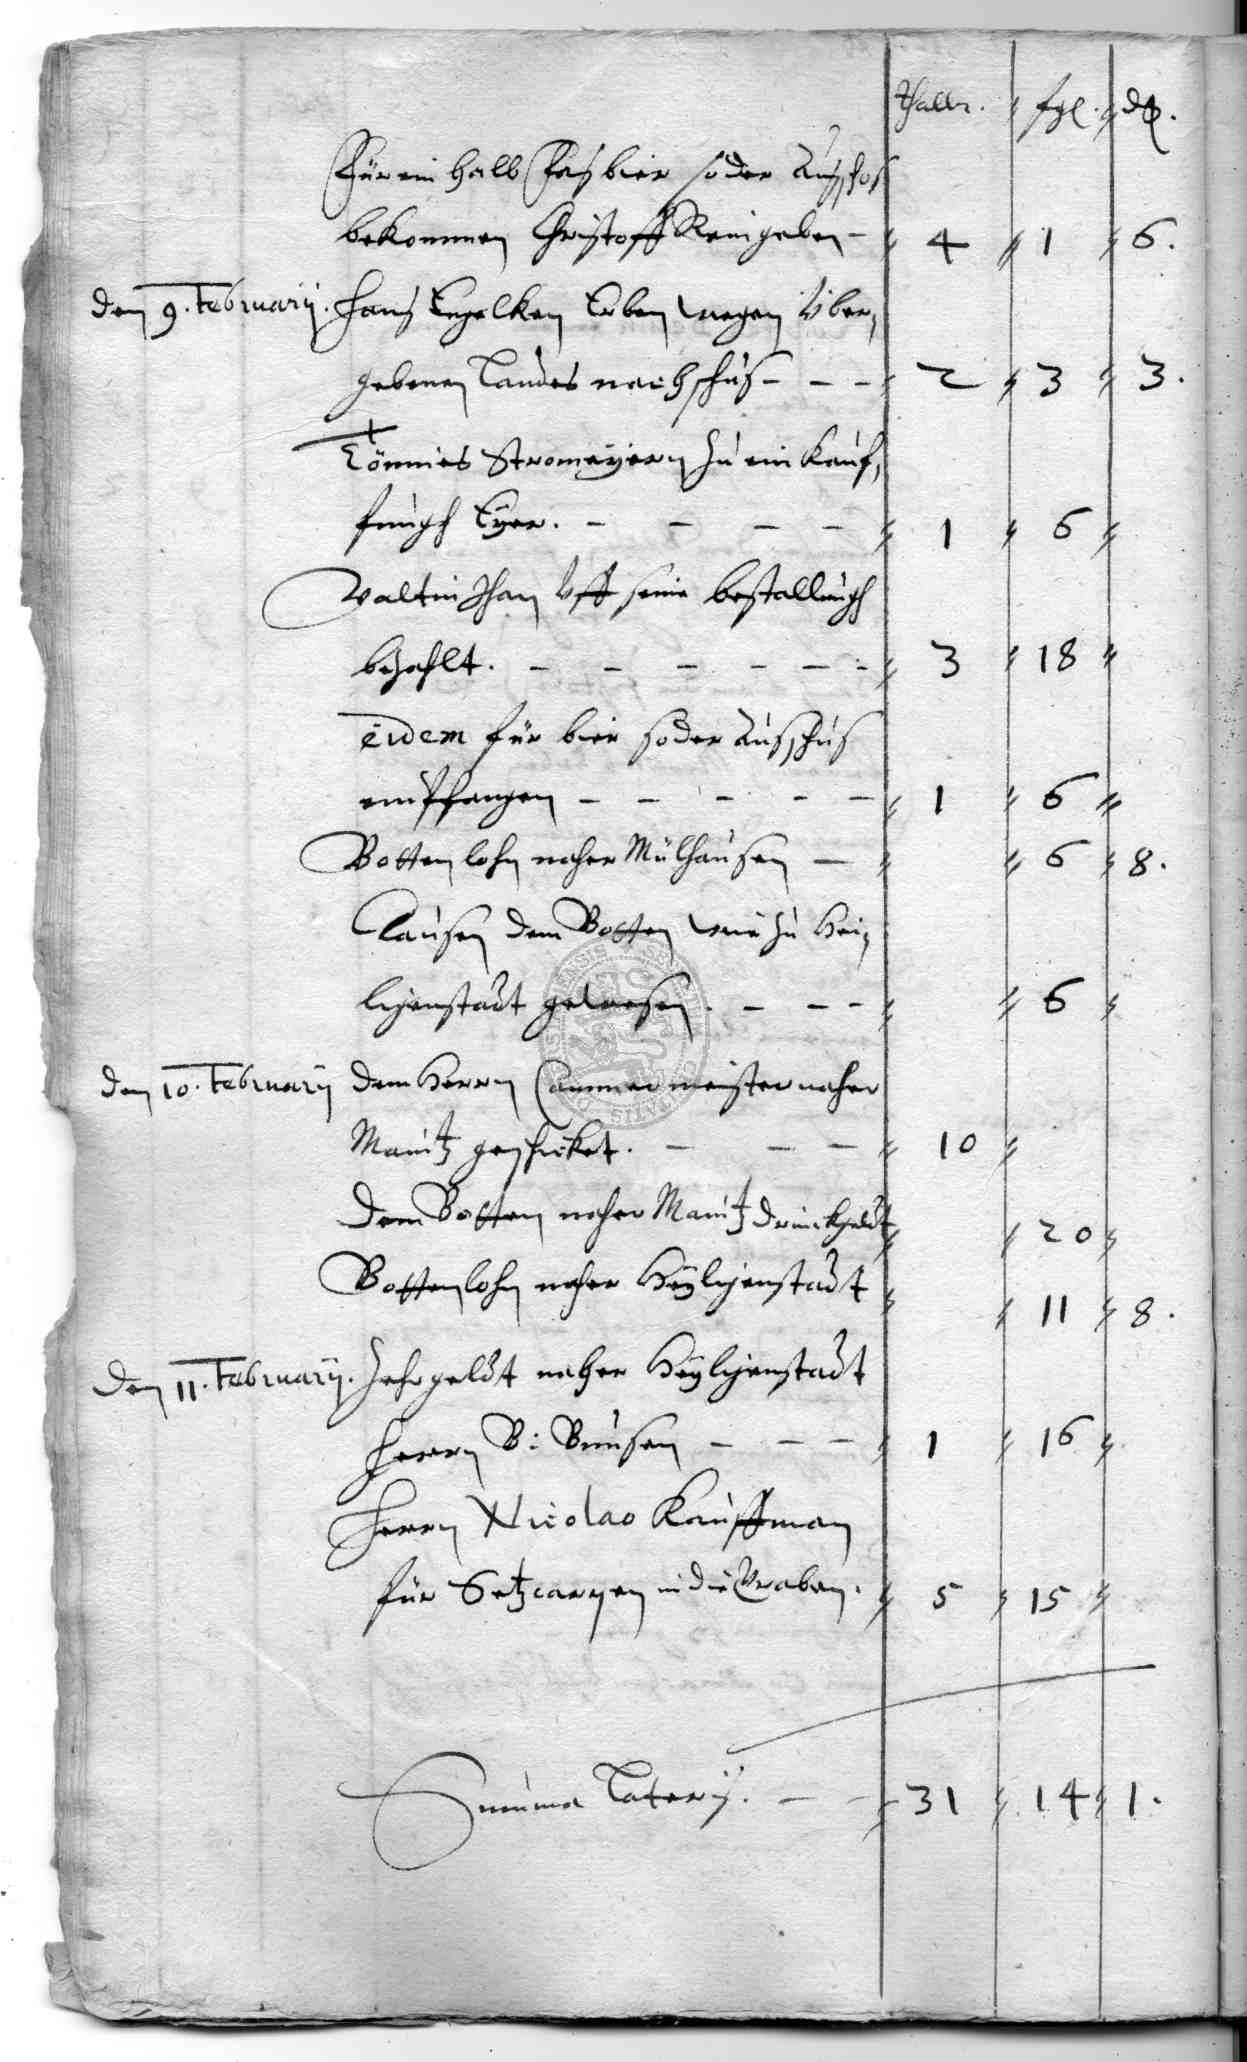 thaller. fgl. d.
Für ein halb Fas bier so der Ausschos
bekommen Christoff Reingeben - 4 1 6.
den 9. Februarij. Hans Engelken Erben wegen Über,
gebenen Landes nachschus - - - 2 3 3.
Tönnies Stromeyern zu ein kauf,
fungh Eyer. - - - - 1 6
Valtin Jhan Uff seine bestallungh
bezahlt. - - - - - - 3 18
eidem für bier so der Ausschus
empfangen - - - - - 1 6
Botten lohn naher Mülhausen - 6 8.
Clausen dem Botten wie zu Hei,
ligenstadt gewesen. - - - 6
den 10. Februarij dem Herrn Cammermeister naher
Maintz geschicket. - - - 10
dem Botten naher Maintz drinckgeldt 20
Bottenlohn naher Heyligenstadt 11 8.
den 11. Februarij. Zehrgeldt naher Heyligenstadt
Herrn B: Bunsen - - - 1 16
Herrn Nicolao Kauffman
für Setzcarpen in die Graben. 5 15
Summa Laterij. - - 31 14 1.